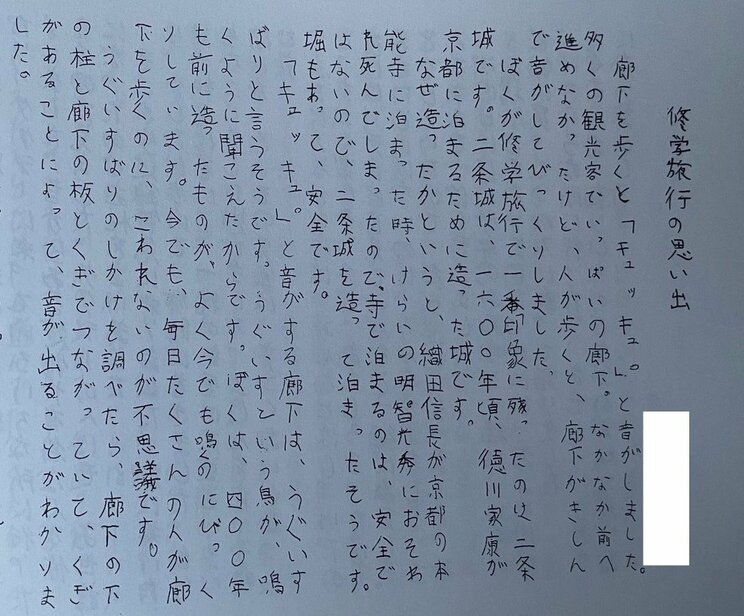 修学旅行の思い出
廊下を歩くと「キュッキュ。」と音がしました。
多くの観光客でいっぱいの廊下。なかなか前へ
進めなかったけど、人が歩くと、廊下がきしん
で音がしてびっくりしました。
ぼくが修学旅行で一番印象に残ったのは二条
城です。二条城は、一六〇〇年頃、徳川家康が
京都に泊まるために造った城です。
なぜ造ったかというと、織田信長が京都の本
能寺に泊まった時、けらいの明智光秀におそわ
れ死んでしまったので、寺で泊まるのは、安全で
はないので、二条城を造って泊まったそうです。
堀もあって、安全です。
「キュッキュ。」と音がする廊下は、うぐいす
ばりと言うそうです。うぐいすという鳥が、鳴
くように聞こえたからです。ぼくは、四〇〇年
も前に造ったものが、よく今でも鳴くのにびっく
りしています。今でも、毎日たくさんの人が廊
下を歩くのに、こわれないのが不思議です。
うぐいすばりのしかけを調べたら、廊下の下
の柱と廊下の板とくぎでつながっていて、くぎ
があることによって、音が出ることがわかりま
した。